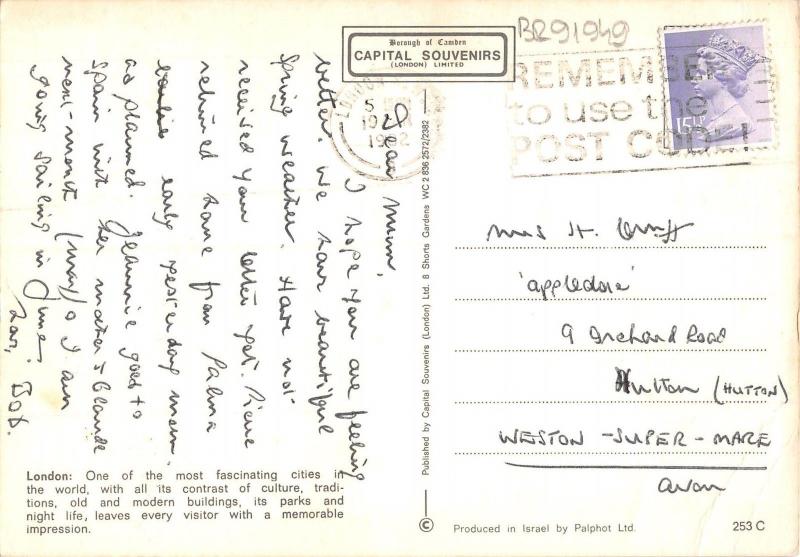 BR91949
Borough of Camden
CAPITAL SOUVENIRS
(LONDON) LIMITED
REMEMBER
to use the
POST CODE!
15½P
Dear Mum,
I hope you are feeling
better. We have beautiful
Spring weather. Have not
received your letter yet.
returned home from Palma
early yesterday morn.
as planned. Jeannie goes to
Spain with her mother &
next month (May) & I am
going sailing in June.
Love, Bob.
London: One of the most fascinating cities in
the world, with all its contrast of culture, tradi-
tions, old and modern buildings, its parks and
night life, leaves every visitor with a memorable
impression.
Published by Capital Souvenirs (London) Ltd. 8 Shorts Gardens WC 2 836 2572/2382
©
Mrs H.
'appledore'
9 Orchard Road
Hutton (HUTTON)
WESTON-SUPER-MARE
Avon
Produced in Israel by Palphot Ltd.
253 C